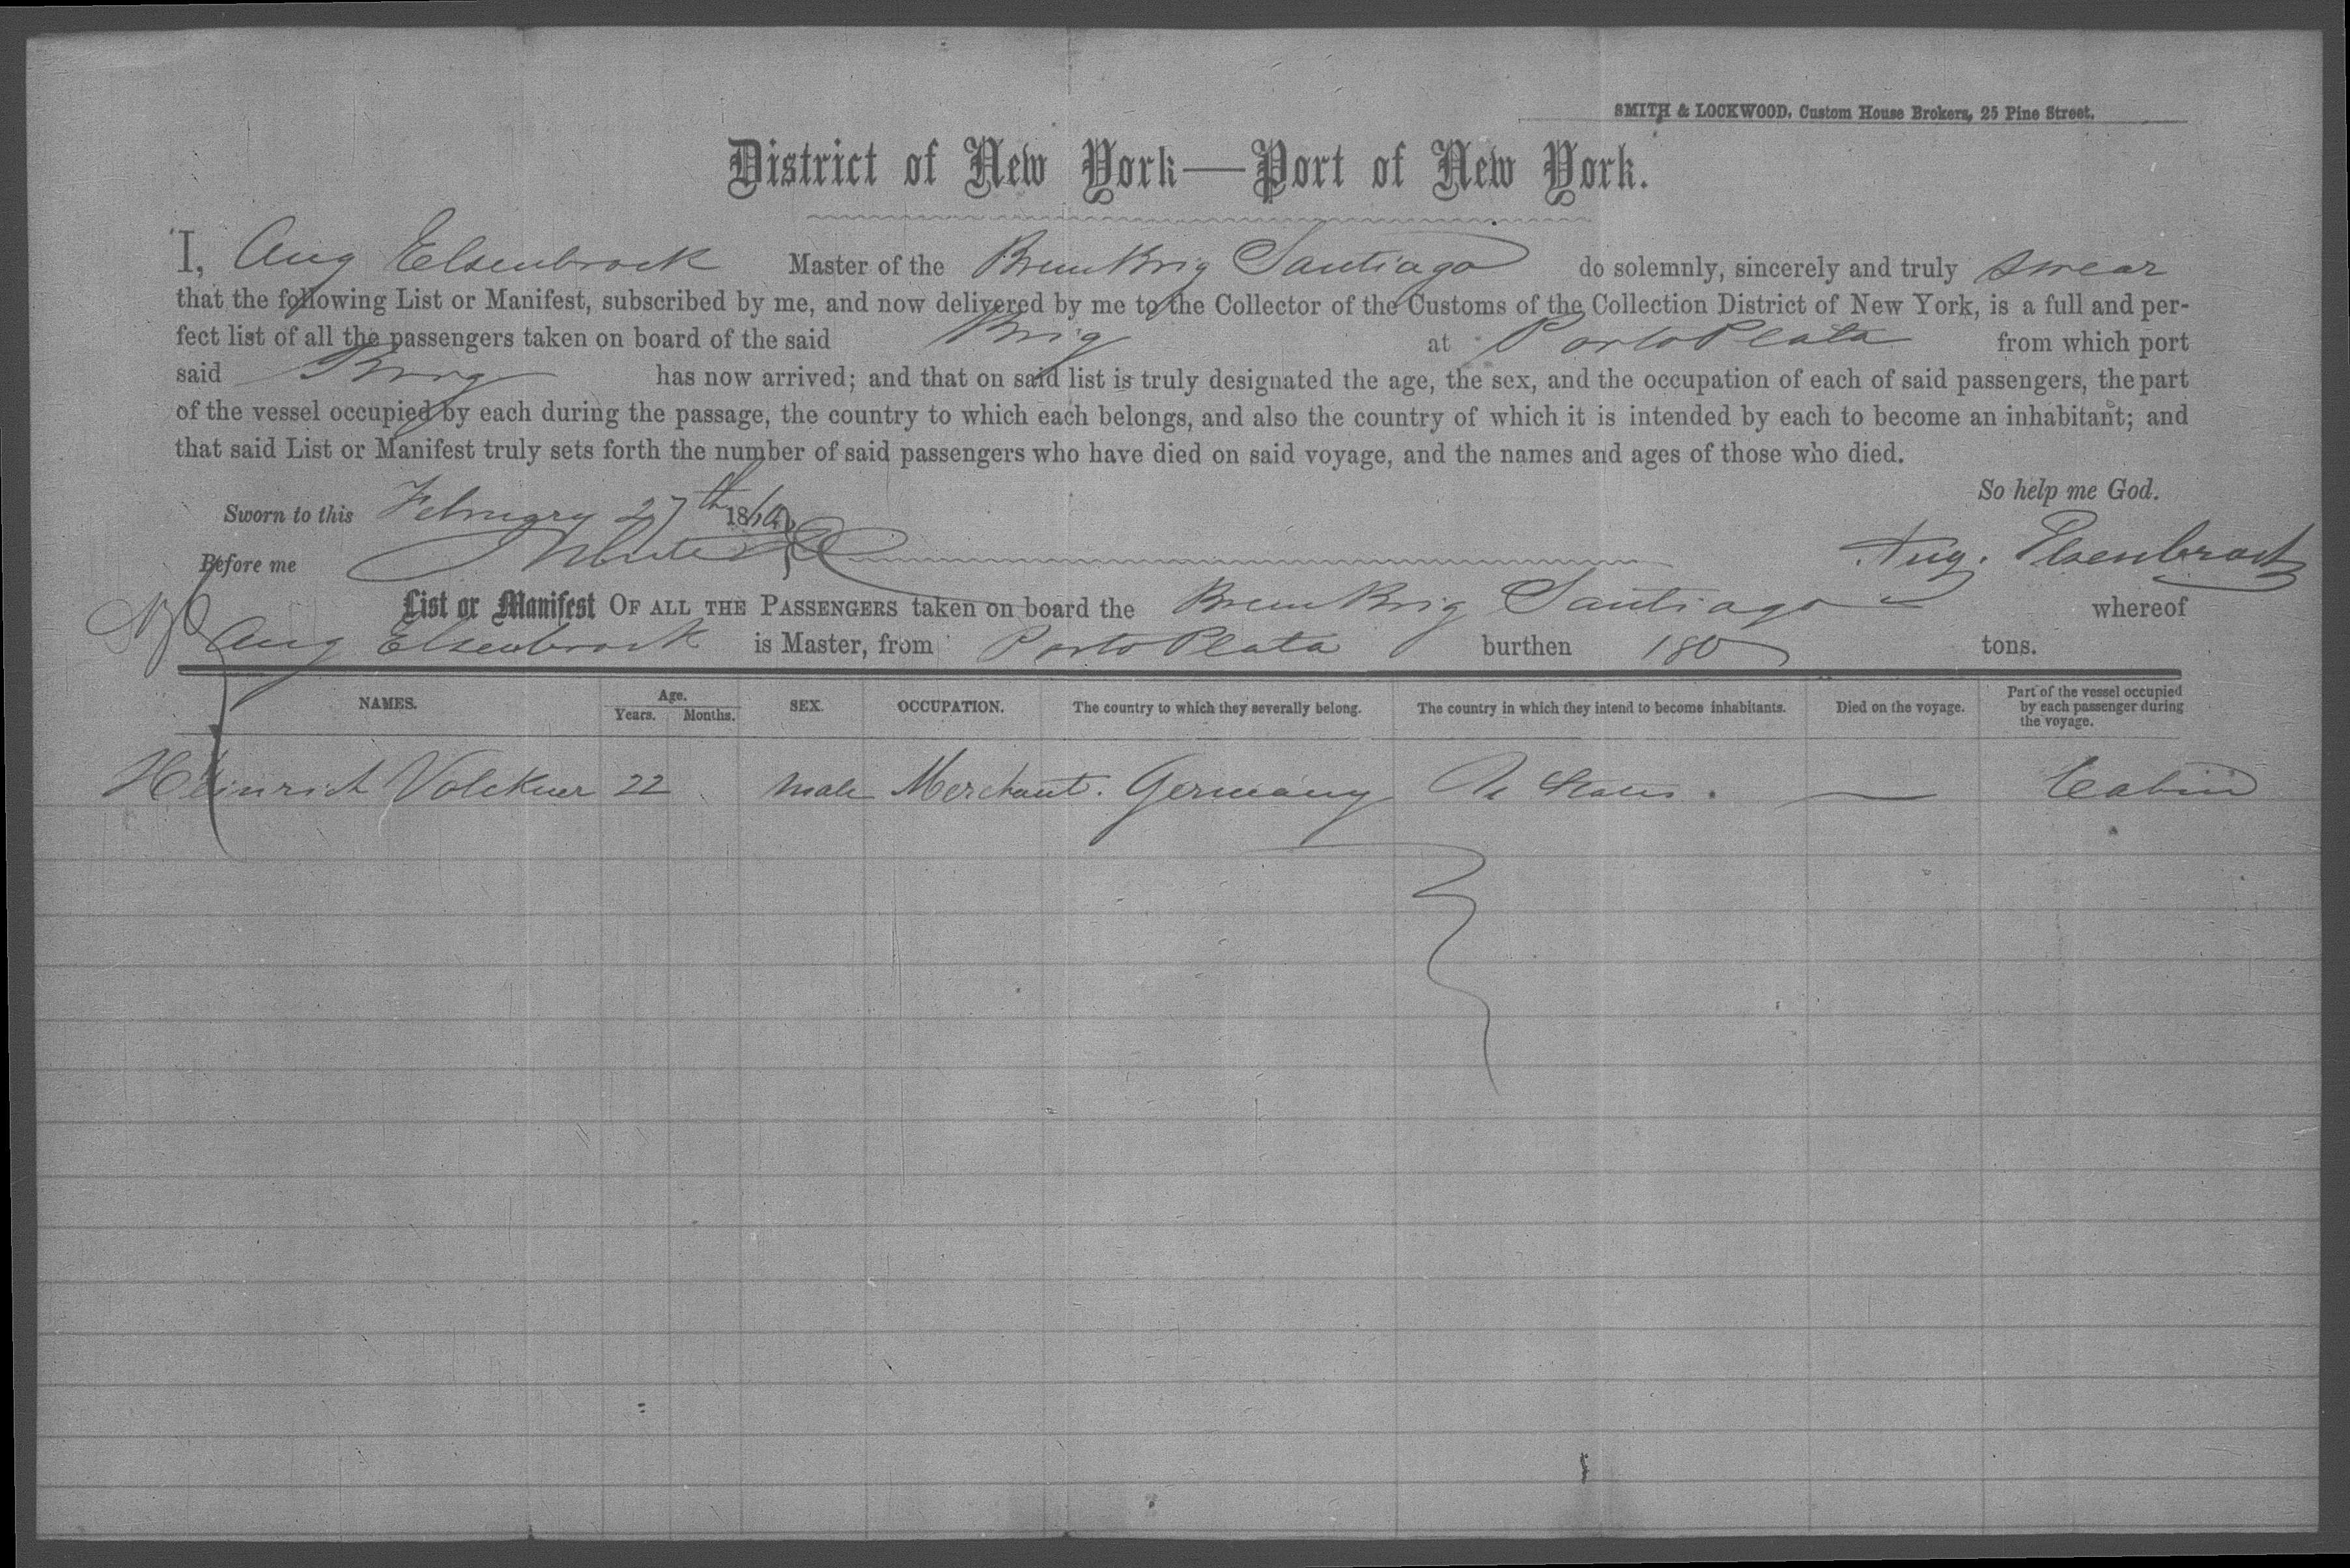 SMITH & LOCKWOOD, Custom House Brokers, 25 Pine Street.
District of New York—Port of New York.
I, Aug Elsenbrock Master of the Brem Brig Santiago do solemnly, sincerely and truly swear
that the following List or Manifest, subscribed by me, and now delivered by me to the Collector of the Customs of the Collection District of New York, is a full and per-
fect list of all the passengers taken on board of the said Brig at Porto Plata from which port
said Brig has now arrived; and that on said list is truly designated the age, the sex, and the occupation of each of said passengers, the part
of the vessel occupied by each during the passage, the country to which each belongs, and also the country of which it is intended by each to become an inhabitant; and
that said List or Manifest truly sets forth the number of said passengers who have died on said voyage, and the names and ages of those who died.
So help me God.
Sworn to this February 27th 186
Before me
Aug. Elsenbrock
List or Manifest OF ALL THE PASSENGERS taken on board the Brem Brig Santiago whereof
Aug Elsenbrock is Master, from Porto Plata burthen 180 tons.
NAMES. Age. Years. Months. SEX. OCCUPATION. The country to which they severally belong. The country in which they intend to become inhabitants. Died on the voyage. Part of the vessel occupied by each passenger during the voyage.
Heinrich Volckner 22 male Merchant. Germany U States. — Cabin